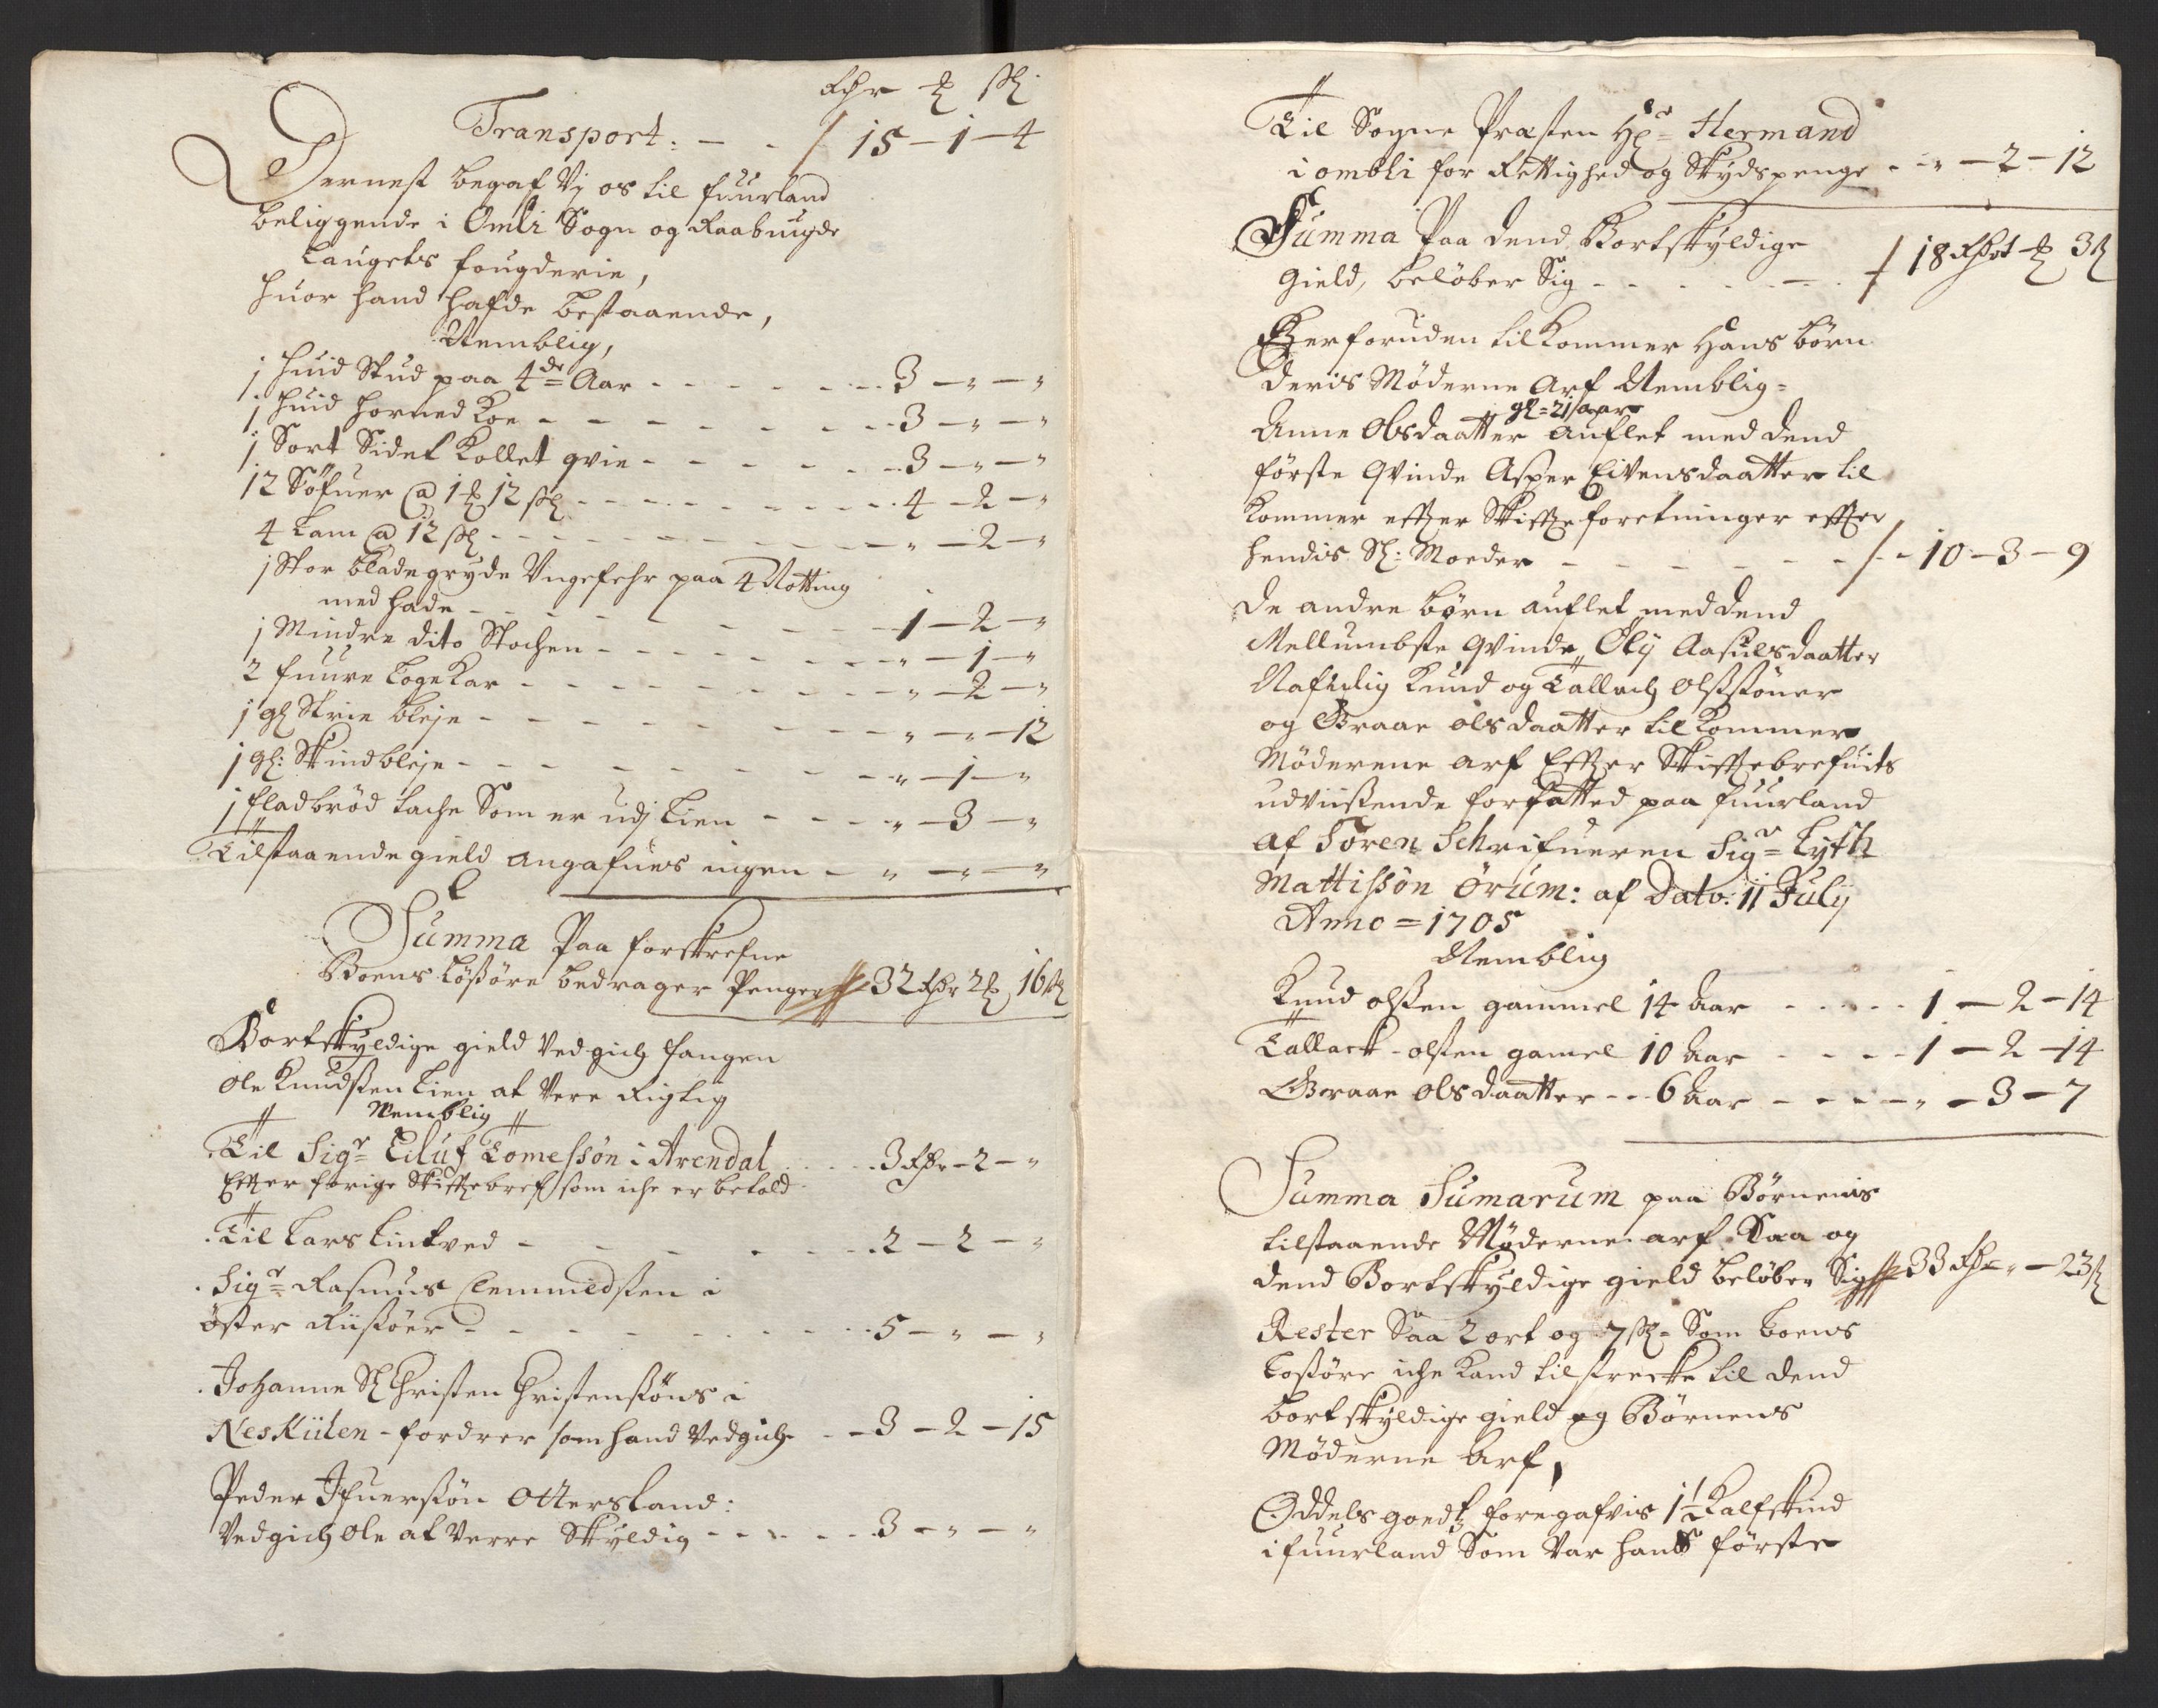 Rdr ₰ ß
Transport: - - / 15 - 1 - 4
Dernest begaf Vj os til fuurland
beliggende i Omli Sogn og Raabuigde
Laugets fougderie,
huor hand hafde bestaaende,
Nemblig,
1 huid Stud paa 4de Aar - - - - 3 - „ - „
1 huid horned Koe - - - - 3 - „ - „
1 Sort Sidet Kollet qvie - - - - 3 - „ - „
12 Söfuer @ 1 ₰ 12 ß - - - - 4 - 2 - „
4 Lam @ 12 ß - - - - „ - 2 - „
1 Stor bladegryde Vngefehr paa 4 Notting
med hade - - - - 1 - 2 - „
1 Mindre dito Stochen - - - - „ - 1 - „
2 fuure LogeKar - - - - „ - 2 - „
1 gl Strie bleje - - - - „ - „ - 12
1 gl: Skindbleje - - - - „ - 1 - „
1 fladbröd Lache Som er udj Lien - - - „ - 3 - „
Tilstaaende gield angafues ingen - „ - „ - „
Summa Paa forskrefne
Boens Lößöre bedrager Penger 32 Rdr 2 ₰ 16 ß
Bortskyldige gield Vedgich fangen
Ole Knudßen Lien at Vere Rigtig
Nemblig
Til Sigr Eiluf Tomeßön i Arendal - - 3 Rdr - 2 - „
Effter forige Skifftebref som iche er betald
Til Lars Lintved - - - - 2 - 2 - „
Sigr Rasmus Clemmedsten i
öster Riißöer - - - - 5 - „ - „
Johanne Sl Christen Christenßöns i
NesKiilen - fordrer som hand Vedgich - - 3 - 2 - 15
Peder Ifuerßön Ottersland:
Vedgich Ole at Verre Skyldig - - - - 3 - „ - „
Til Sogne Præsten Hr Hermand
i ombli for Rettighed og Skydspenge - - „ - 2 - 12
Summa Paa dend Bortskyldige
Gield, belöber Sig - - - - 18 Rdr 1 ₰ 3 ß
Herforuden tilkommer Hans börn
deris Möderne Arf Nemblig =
gl = 21 aar
Anne Olsdaatter auflet med dend
förste Qvinde Asper Eivensdaatter til
Kommer effter Skiffteforetninger effter
hendis Sl: Moeder - - - - / - - 10 - 3 - 9
De andre börn auflet med dend
Mellumbste Qvinde Öly Aasulsdaatter
Nafnlig Knud og Tallach Olßstöner
og Graae olsdaatter tilkommer
Möderene arf Effter Skifftebrefuits
udviißende forfatted paa fuurland
af Soren Schrifueren Sigr Lyth
Mattißön Örum: af Dato: 11 Julij
Anno = 1705
Nemblig
Knud olßen gammel 14 aar - - - - 1 - 2 - 14
Tallack - olßen gamel 10 aar - - - - 1 - 2 - 14
Graae olsdaatter - - 6 aar - - - - „ - 3 - 7
Summa Sumarum paa Börnenis
tilstaaende Möderne arf Saa og
dend Bortskyldige gield belöber Sig 33 Rdr „ - 23 ß
Rester Saa 2 ort og 7 ß = Som boens
Loßöre iche Kand tilstrecke til dend
bortskyldige gield og Börnens
Möderne Arf,
Oddels goedtz foregafvis 1½ Kalfskind
i fuurland Som Var hans förste